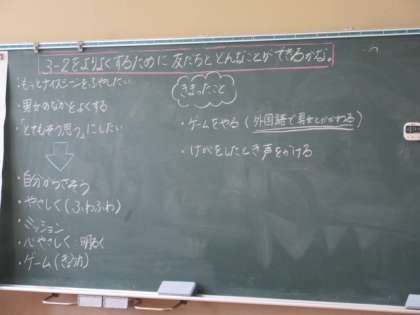 3-2をよりよくするために 友だちとどんなことができるかな。
もっとナイスシーンをふやしたい
・男女のなかをよくする
「とてもそう思う」にしたい
・自分からさそう
・やさしく(ふわふわ)
・ミッション
・心やさしく 明るく
・ゲーム(きょう力)
きまったこと
・ゲームをやる(外国語で男女とかかわる)
・けがをしたとき声をかける